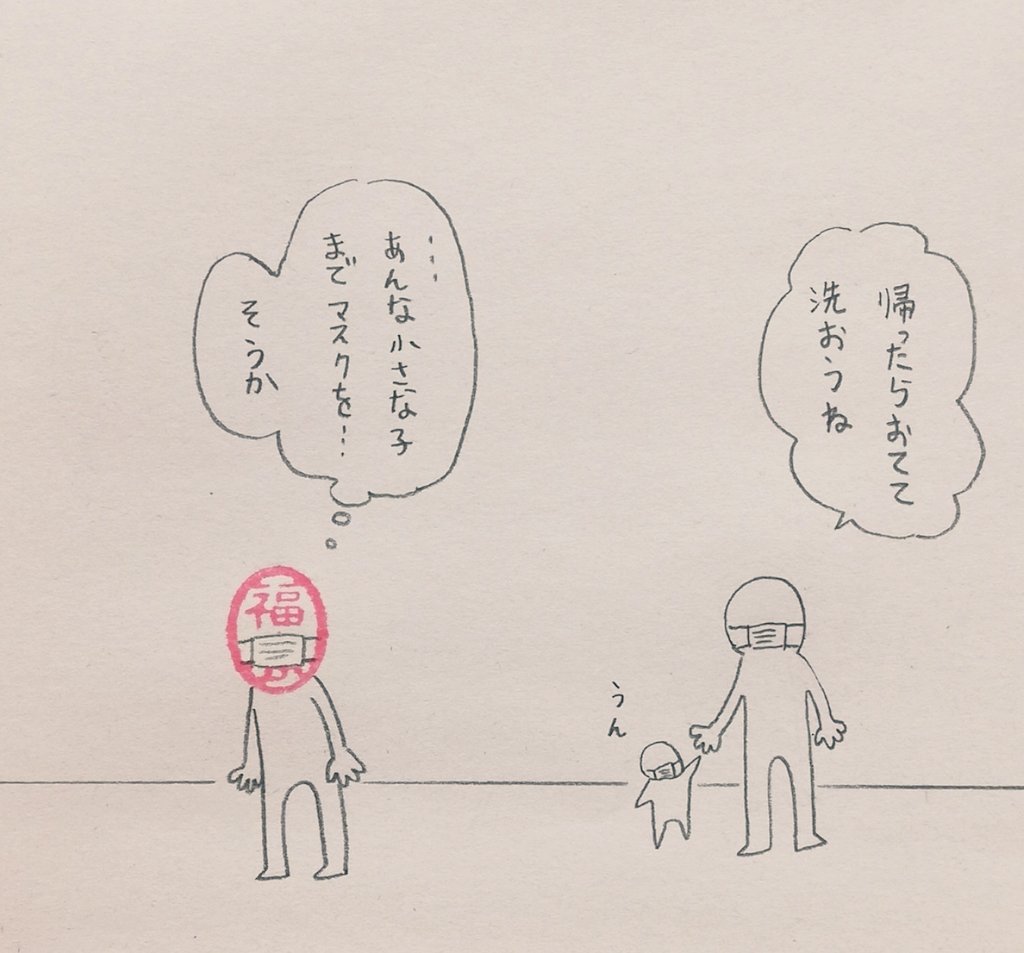 帰ったらおてて
洗おうね
うん
…
あんな小さな子
までマスクを…
そうか
福